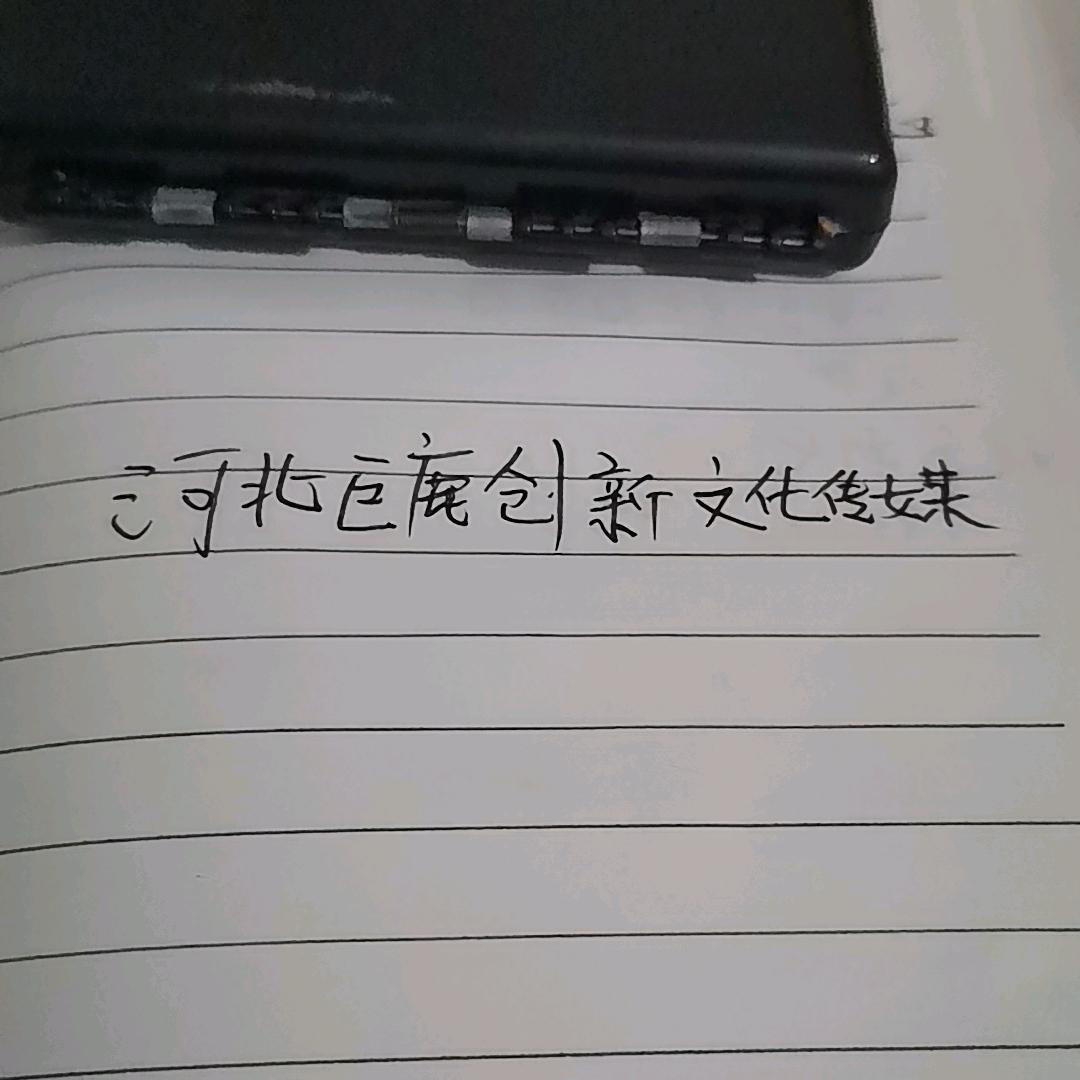 河北巨鹿创新文化传媒